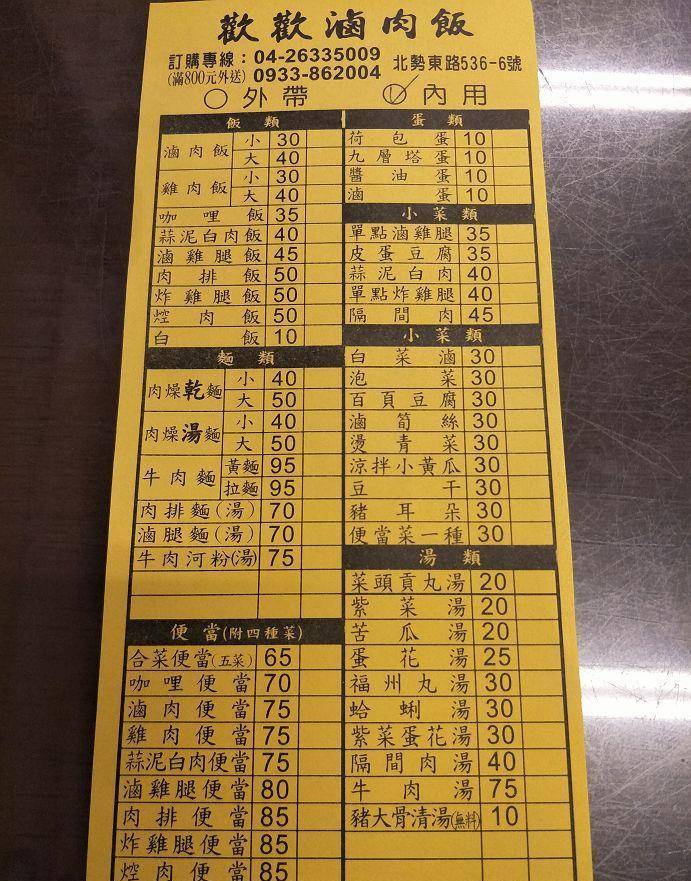 歡歡滷肉飯
訂購專線：04-26335009
(滿800元外送) 0933-862004
北勢東路536-6號
外帶
內用
飯類
滷肉飯 小 30
大 40
雞肉飯 小 30
大 40
咖哩飯 35
蒜泥白肉飯 40
滷雞腿飯 45
肉排飯 50
炸雞腿飯 50
焢肉飯 50
白飯 10
麵類
肉燥乾麵 小 40
大 50
肉燥湯麵 小 40
大 50
牛肉麵 黃麵 95
拉麵 95
肉排麵(湯) 70
滷腿麵(湯) 70
牛肉河粉(湯) 75
便當(附四種菜)
合菜便當(五菜) 65
咖哩便當 70
滷肉便當 75
雞肉便當 75
蒜泥白肉便當 75
滷雞腿便當 80
肉排便當 85
炸雞腿便當 85
焢肉便當 85
蛋類
荷包蛋 10
九層塔蛋 10
醬油蛋 10
滷蛋 10
小菜類
單點滷雞腿 35
皮蛋豆腐 35
蒜泥白肉 40
單點炸雞腿 40
隔間肉 45
小菜類
白菜滷 30
泡菜 30
百頁豆腐 30
滷筍絲 30
燙青菜 30
涼拌小黃瓜 30
豆干 30
豬耳朵 30
便當菜一種 30
湯類
菜頭貢丸湯 20
紫菜湯 20
苦瓜湯 20
蛋花湯 25
福州丸湯 30
蛤蜊湯 30
紫菜蛋花湯 30
隔間肉湯 40
牛肉湯 75
豬大骨清湯(無料) 10